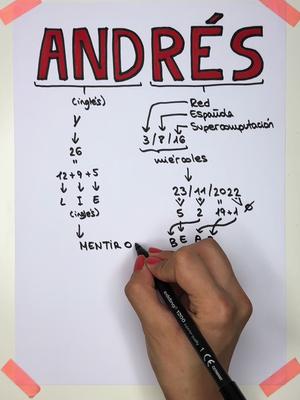 ANDRÉS
(inglés)
Y
26
=
12 + 9 + 5
L I E
(inglés)
MENTIRO
Red
Española
Supercomputación
3 / 8 / 16
miércoles
23 / 11 / 2022
5 2 19+1
B E A